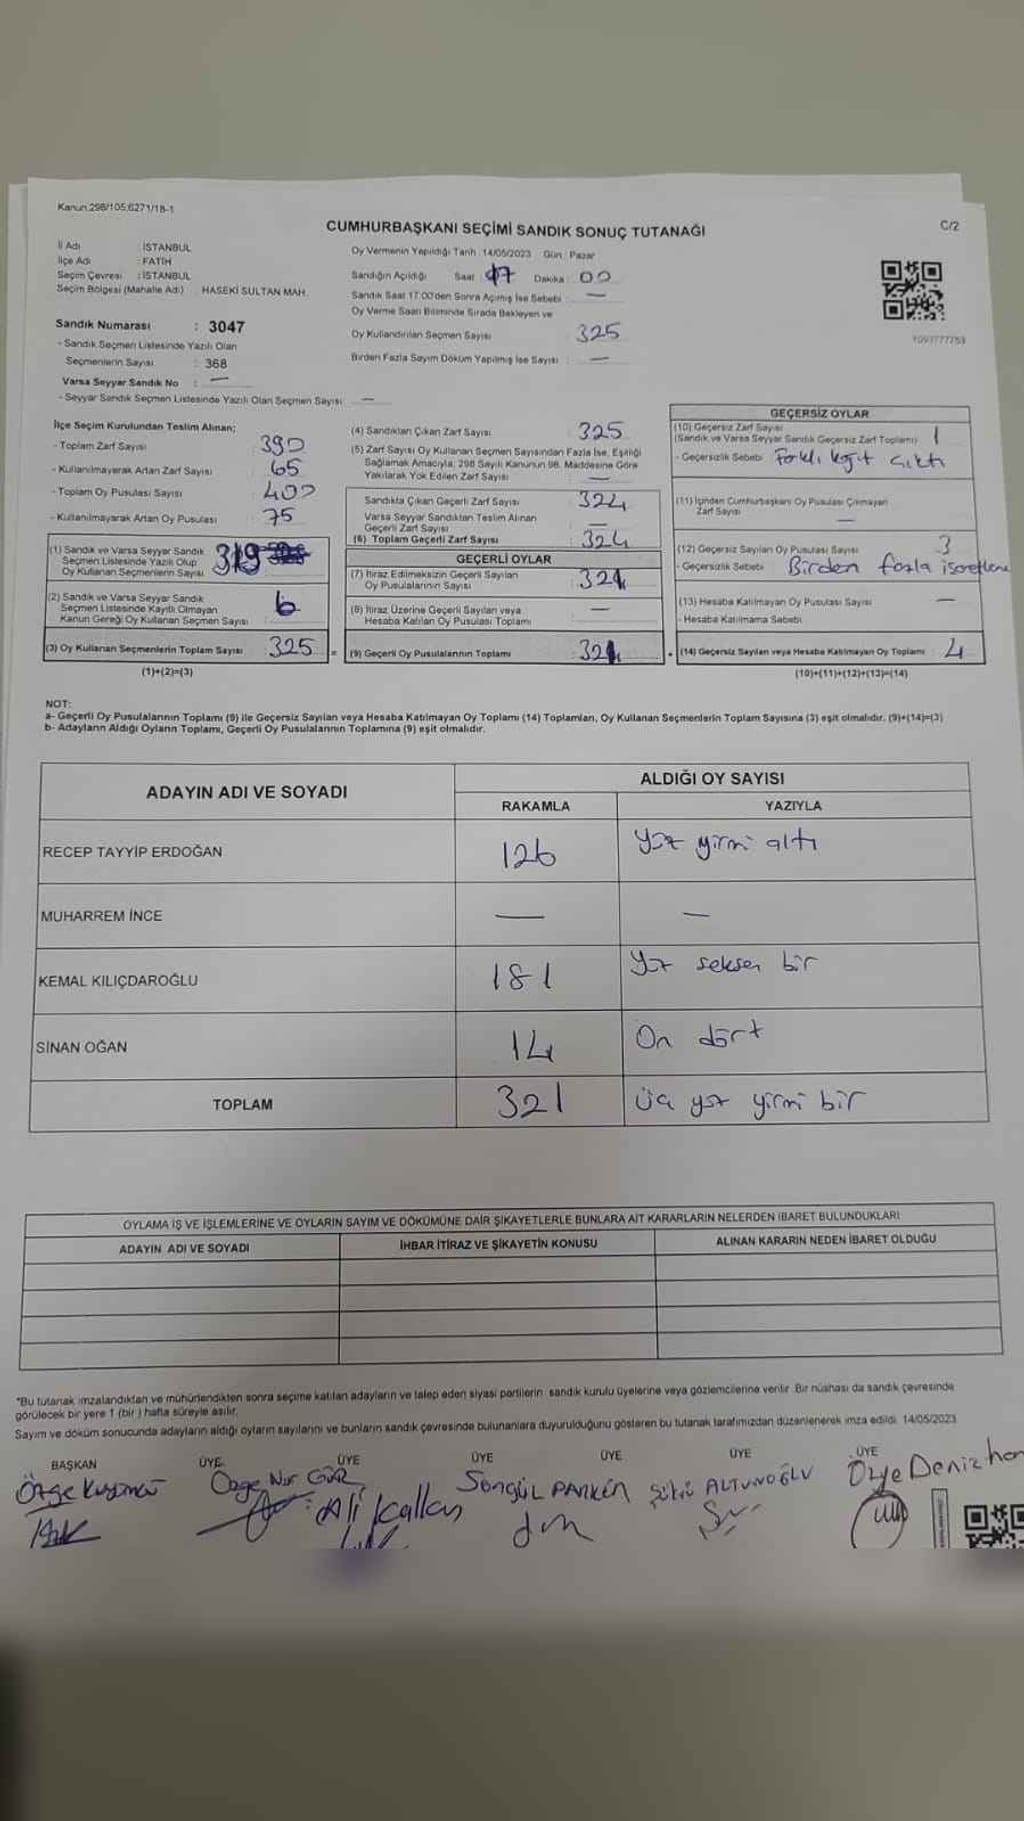 Kanun:298/105;6271/18-1
CUMHURBAŞKANI SEÇİMİ SANDIK SONUÇ TUTANAĞI
C/2
İl Adı : İSTANBUL
İlçe Adı : FATİH
Seçim Çevresi : İSTANBUL
Seçim Bölgesi (Mahalle Adı) : HASEKİ SULTAN MAH.
Sandık Numarası : 3047
- Sandık Seçmen Listesinde Yazılı Olan
Seçmenlerin Sayısı : 368
Varsa Seyyar Sandık No : —
- Seyyar Sandık Seçmen Listesinde Yazılı Olan Seçmen Sayısı: —
Oy Vermenin Yapıldığı Tarih : 14/05/2023 Gün : Pazar
Sandığın Açıldığı Saat : 17 Dakika : 00
Sandık Saat 17:00'den Sonra Açımış İse Sebebi : —
Oy Verme Saati Bitiminde Sırada Bekleyen ve
Oy Kullandırılan Seçmen Sayısı : 325
Birden Fazla Sayım Döküm Yapılmış İse Sayısı : —
İlçe Seçim Kurulundan Teslim Alınan;
- Toplam Zarf Sayısı 390
- Kullanılmayarak Artan Zarf Sayısı 65
- Toplam Oy Pusulası Sayısı 400
- Kullanılmayarak Artan Oy Pusulası 75
(1) Sandık ve Varsa Seyyar Sandık
Seçmen Listesinde Yazılı Olup
Oy Kullanan Seçmenlerin Sayısı 319
(2) Sandık ve Varsa Seyyar Sandık
Seçmen Listesinde Kayıtlı Olmayan
Kanun Gereği Oy Kullanan Seçmen Sayısı 6
(3) Oy Kullanan Seçmenlerin Toplam Sayısı 325 =
(1)+(2)=(3)
(4) Sandıktan Çıkan Zarf Sayısı 325
(5) Zarf Sayısı Oy Kullanan Seçmen Sayısından Fazla İse, Eşitliği
Sağlamak Amacıyla, 298 Sayılı Kanunun 98. Maddesine Göre
Yakılarak Yok Edilen Zarf Sayısı —
Sandıkta Çıkan Geçerli Zarf Sayısı 324
Varsa Seyyar Sandıktan Teslim Alınan
Geçerli Zarf Sayısı —
(6) Toplam Geçerli Zarf Sayısı 324
GEÇERLİ OYLAR
(7) İtiraz Edilmeksizin Geçerli Sayılan
Oy Pusulalarının Sayısı 321
(8) İtiraz Üzerine Geçerli Sayılan veya
Hesaba Katılan Oy Pusulası Toplamı —
(9) Geçerli Oy Pusulalarının Toplamı 321 +
GEÇERSİZ OYLAR
(10) Geçersiz Zarf Sayısı
(Sandık ve Varsa Seyyar Sandık Geçersiz Zarf Toplamı) 1
- Geçersizlik Sebebi Farklı kağıt çıktı
(11) İçinden Cumhurbaşkanı Oy Pusulası Çıkmayan
Zarf Sayısı —
(12) Geçersiz Sayılan Oy Pusulası Sayısı 3
- Geçersizlik Sebebi Birden fazla işaretleme
(13) Hesaba Katılmayan Oy Pusulası Sayısı —
- Hesaba Katılmama Sebebi
(14) Geçersiz Sayılan veya Hesaba Katılmayan Oy Toplamı 4
(10)+(11)+(12)+(13)=(14)
NOT:
a- Geçerli Oy Pusulalarının Toplamı (9) ile Geçersiz Sayılan veya Hesaba Katılmayan Oy Toplamı (14) Toplamları, Oy Kullanan Seçmenlerin Toplam Sayısına (3) eşit olmalıdır. (9)+(14)=(3)
b- Adayların Aldığı Oyların Toplamı, Geçerli Oy Pusulalarının Toplamına (9) eşit olmalıdır.
ADAYIN ADI VE SOYADI
ALDIĞI OY SAYISI
RAKAMLA YAZIYLA
RECEP TAYYİP ERDOĞAN 126 Yüz yirmi altı
MUHARREM İNCE — —
KEMAL KILIÇDAROĞLU 181 Yüz seksen bir
SİNAN OĞAN 14 On dört
TOPLAM 321 Üç yüz yirmi bir
OYLAMA İŞ VE İŞLEMLERİNE VE OYLARIN SAYIM VE DÖKÜMÜNE DAİR ŞİKAYETLERLE BUNLARA AİT KARARLARIN NELERDEN İBARET BULUNDUKLARI
ADAYIN ADI VE SOYADI İHBAR İTİRAZ VE ŞİKAYETİN KONUSU ALINAN KARARIN NEDEN İBARET OLDUĞU
*Bu tutanak imzalandıktan ve mühürlendikten sonra seçime katılan adayların ve talep eden siyasi partilerin sandık kurulu üyelerine veya gözlemcilerine verilir. Bir nüshası da sandık çevresinde
görülecek bir yere 1 (bir) hafta süreyle asılır.
Sayım ve döküm sonucunda adayların aldığı oyların sayılarını ve bunların sandık çevresinde bulunanlara duyurulduğunu gösteren bu tutanak tarafımızdan düzenlenerek imza edildi. 14/05/2023
BAŞKAN ÜYE ÜYE ÜYE ÜYE ÜYE ÜYE
Özge Nur GÜR Ali Kallan Songül Şükrü ALTUNOĞLU